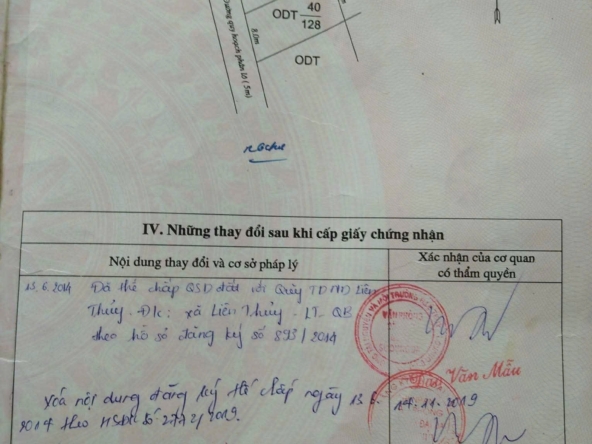 ODT 40
128
8.0m
Đường quy hoạch phân lô (5m)
ODT
IV. Những thay đổi sau khi cấp giấy chứng nhận
Nội dung thay đổi và cơ sở pháp lý
Xác nhận của cơ quan
có thẩm quyền
13.6.2014 Đã thế chấp QSD đất với Quỹ TDND Liên
Thủy - Đ/c: xã Liên Thủy - LT - QB
theo hồ sơ đăng ký số 893/2014
VĂN PHÒNG
Văn Mẫu
Xóa nội dung đăng ký thế chấp ngày 13.6.
2014 theo HSĐK số 2772/2019.
14.11.2019